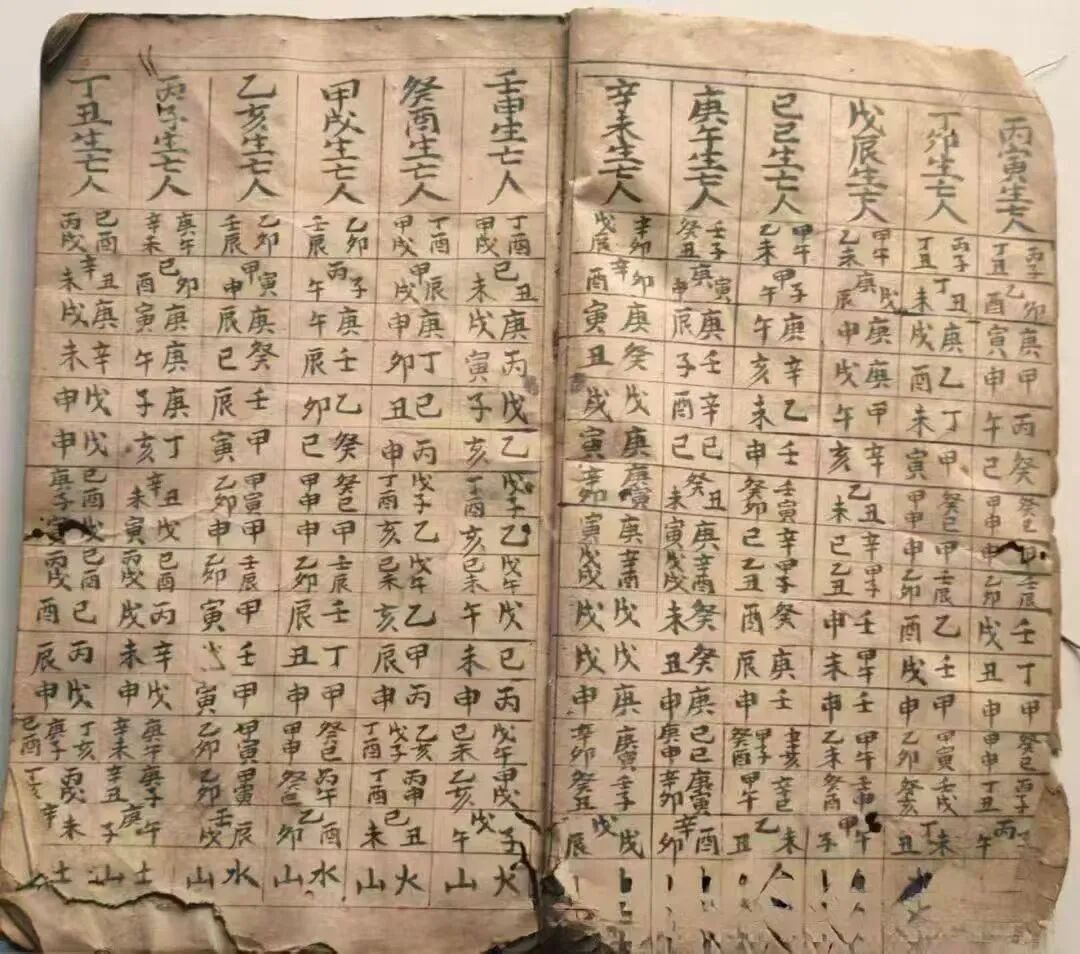 丙寅生亡人 丙子丁丑 乙卯酉 庚寅 甲申 丙午 癸巳 癸巳甲申 申 壬辰乙卯 壬戌 丁丑 甲申 癸巳甲申 丙子丁丑 丙午
丁卯生亡人 丙子丁丑 丁丑未 庚戌 乙酉 丁未 甲寅 癸巳甲申 甲申 壬辰乙卯 乙酉 壬戌 甲申 甲寅乙卯 壬戌癸亥 丁未丑
戊辰生亡人 甲午乙未 庚戌辰 庚申 庚戌 甲午 辛亥 乙丑未 辛巳 甲子乙丑 壬申 甲午未 壬申 甲午乙未 壬申癸酉 甲午子
己巳生亡人 甲午乙未 甲子午 庚午 辛亥 乙未 壬申 壬寅癸卯 辛巳 甲子乙丑 癸酉 庚辰 壬申 辛亥甲子癸酉 辛巳甲午 乙未丑
庚午生亡人 壬子癸丑 庚寅申 庚辰 壬子 辛酉 己巳 癸丑未 庚寅 辛酉戊戌 癸未 癸丑 庚申 己巳庚申 庚寅辛卯 辛酉卯
辛未生亡人 辛卯戊辰 辛卯酉 庚寅 癸丑 戊戌 庚寅 庚寅辛卯 庚寅 辛酉戊戌 戊戌 戊戌 庚申 庚寅辛卯 壬子癸丑 戊戌辰
壬申生亡人 丁酉甲戌 己丑未 庚戌 丙寅 戊子 乙亥 戊子丁酉 乙亥 戊午己未 戊午 己未 丙申 戊午己未 甲戌乙亥 戊子午 火山
癸酉生亡人 丁酉甲戌 甲辰戌 庚申 丁卯 己丑 丙申 戊子丁酉 乙亥 戊午己未 乙亥 甲辰 丙申 乙亥戊子丁酉 丙申丁酉 己丑未 火山
甲戌生亡人 乙卯壬辰 丙子午 庚午 壬辰 乙卯 癸巳 癸巳甲申 甲申 壬辰乙卯 壬辰 丁丑 甲申 癸巳甲申 丙午癸巳 乙酉卯 水山
乙亥生亡人 乙卯壬辰 甲寅申 庚辰 癸巳 壬辰 甲寅 甲寅乙卯 甲申 壬辰乙卯 甲寅 壬 甲寅 甲寅乙卯 甲寅乙卯 壬辰戌 水山
丙子生亡人 庚午辛未 己卯酉 庚寅 庚午 庚子 丁亥 辛丑未 戊寅 己酉丙戌 丙戌 辛未 戊申 庚午辛未 庚子辛丑 庚午子 土山
丁丑生亡人 己酉丙戌 辛丑未 庚戌 辛未 戊申 戊申 己酉庚子 戊寅 己酉丙戌 己酉 丙辰 戊申 丁亥庚子己酉 丙戌丁亥 辛未 土